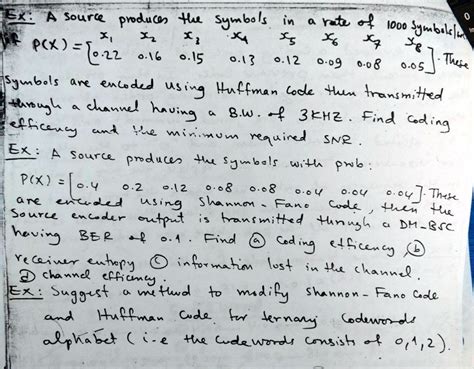 Ex: A source produces the symbols in a rate of 1000 symbols/
x1 x2 x3 x4 x5 x6 x7 x8
if P(X) = [0.22 0.16 0.15 0.13 0.12 0.09 0.08 0.05]. These
symbols are encoded using Huffman code then transmitted
through a channel having a B.W. of 3KHZ. Find coding
efficency and the minimum required SNR.
Ex: A source produces the symbols with prob:
P(X) = [0.4 0.2 0.12 0.08 0.08 0.04 0.04 0.04]. These
are encoded using Shannon-Fano code, then the
source encoder output is transmitted through a DM-BSC
having BER of 0.1. Find ⓐ Coding efficency, ⓑ
receiver entropy ⓒ information lost in the channel.
ⓓ channel efficency.
Ex: Suggest a method to modify Shannon-Fano code
and Huffman code for ternary codewords
alphabet (i-e the codewords consists of 0,1,2).